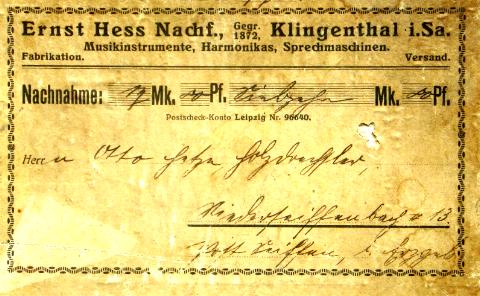 Ernst Hess Nachf., Gegr. 1872, Klingenthal i.Sa.
Musikinstrumente, Harmonikas, Sprechmaschinen.
Fabrikation. Versand.
Nachnahme: 17 Mk. Pf. Siebzehn Mk. Pf.
Postscheck-Konto Leipzig Nr. 96640.
Herrn Otto Hetze, Holzdrechsler,
Niederseiffenbach 13
Post Seiffen, i. Erzgeb